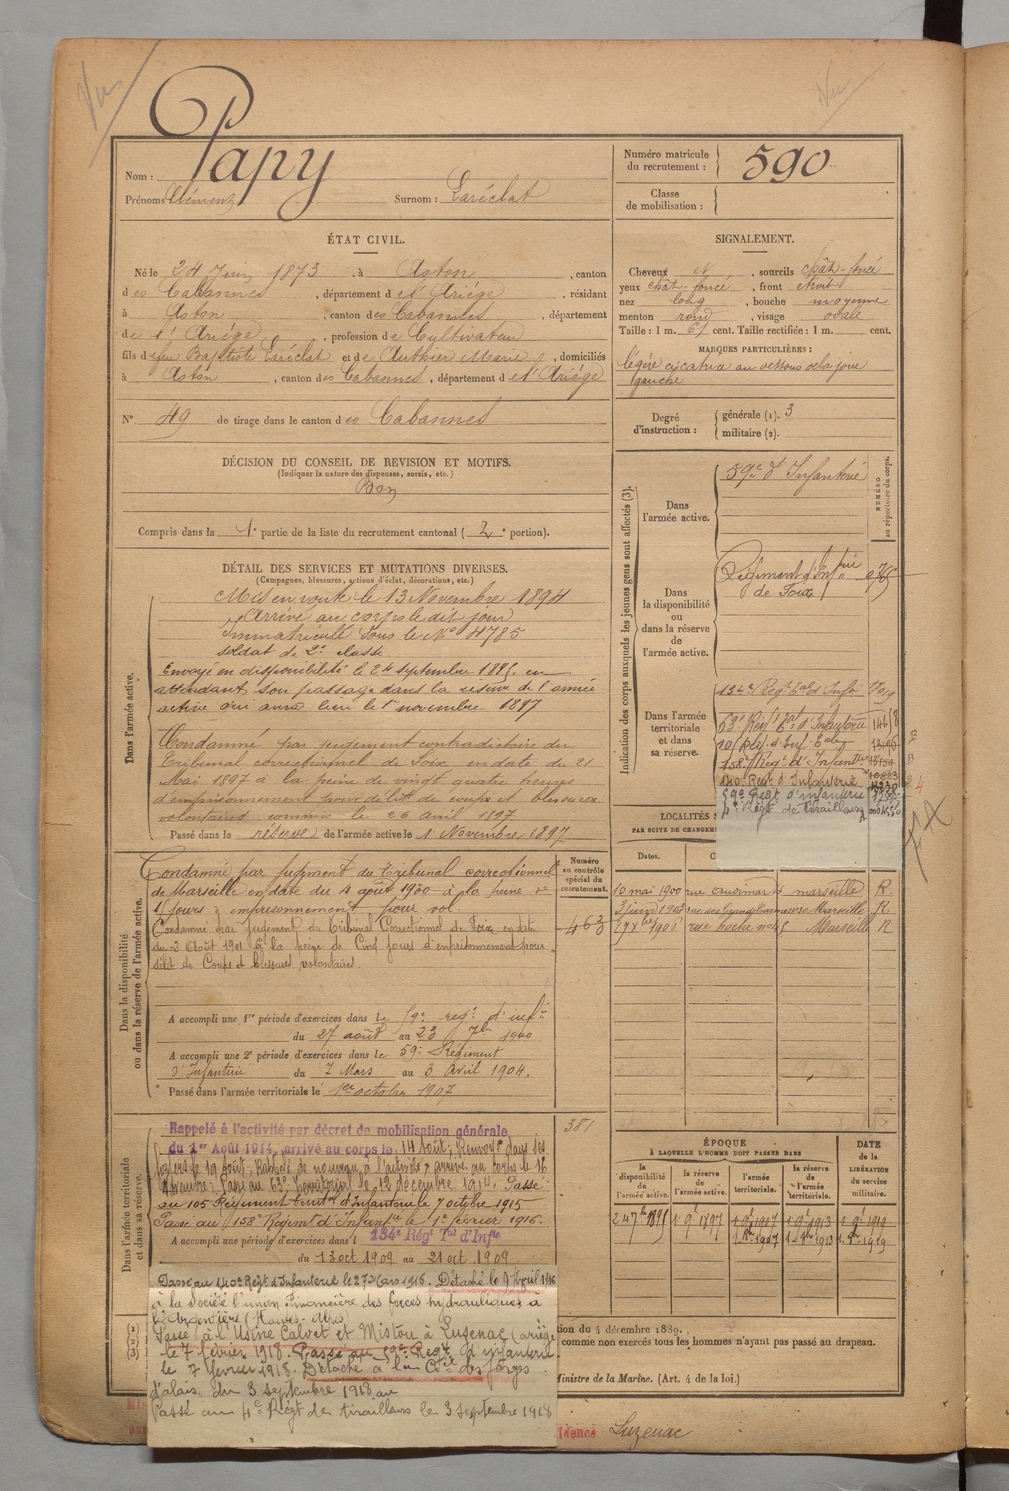 Vu
Vu
Papy
Nom :
Prénoms Clément Surnom : Laréclat
Numéro matricule
du recrutement : 590
Classe
de mobilisation :
ÉTAT CIVIL.
Né le 24 Juin 1873, à Aston, canton
des Cabannes, département de l'Ariége, résidant
à Aston, canton des Cabannes, département
de l'Ariége, profession de Cultivateur
fils de feu Baptiste Laréclat et de Authier Marie, domiciliés
à Aston, canton des Cabannes, département de l'Ariége
N° 49 de tirage dans le canton des Cabannes
SIGNALEMENT.
Cheveux N, sourcils chât-foncé
yeux chât-foncé, front étroit
nez long, bouche moyenne
menton rond, visage ovale
Taille : 1 m. 61 cent. Taille rectifiée : 1 m. cent.
MARQUES PARTICULIÈRES :
légère cicatrice au dessous de la joue
gauche
Degré
d'instruction :
générale (1). 3
militaire (2).
DÉCISION DU CONSEIL DE REVISION ET MOTIFS.
(Indiquer la nature des dispenses, sursis, etc.)
Bon
Compris dans la 1e partie de la liste du recrutement cantonal (2e portion).
DÉTAIL DES SERVICES ET MUTATIONS DIVERSES.
(Campagnes, blessures, actions d'éclat, décorations, etc.)
Dans l'armée active.
Mis en route le 13 Novembre 1894
Arrivé au corps le dit jour
Immatriculé sous le No 4785
soldat de 2e classe
Envoyé en disponibilité le 24 septembre 1895 en
attendant son passage dans la réserve de l'armée
active qui aura lieu le 1er novembre 1897
Condamné par jugement contradictoire du
Tribunal correctionnel de Foix en date du 21
Mai 1897 à la peine de vingt quatre heures
d'emprisonnement pour délit de coups et blessures
volontaires commis le 26 avril 1897
Passé dans la réserve de l'armée active le 1er Novembre 1897
Indication des corps auxquels les jeunes gens sont affectés (3).
NUMÉRO
au répertoire du corps.
Dans
l'armée active.
59e d'Infanterie
Dans
la disponibilité
ou
dans la réserve
de
l'armée active.
Régiment d'Infrie
de Foix
Dans l'armée
territoriale
et dans
sa réserve.
134e Régt tal d'Infie
63e Régt tal d'Infanterie
158e Régt d'Infanterie
140e Régt d'Infanterie
59e Régt d'infanterie
4e Régt de tirailleurs
Dans la disponibilité
ou dans la réserve de l'armée active.
Condamné par jugement du Tribunal correctionnel
de Marseille en date du 4 août 1900 à la peine de
15 jours d'emprisonnement pour vol
Condamné par jugement du Tribunal Correctionnel de Foix en date
du 2 Août 1901 à la peine de Cinq jours d'emprisonnement pour
délit de Coups et blessures volontaires.
A accompli une 1re période d'exercices dans le 59e régt d'infie
du 27 août au 23 7bre 1900
A accompli une 2e période d'exercices dans le 59e Régiment
d'Infanterie du 7 Mars au 3 Avril 1904.
Passé dans l'armée territoriale le 1er octobre 1907
Numéro
au contrôle
spécial du
recrutement.
463
381
LOCALITÉS
PAR SUITE DE CHANGEM
Dates.
10 mai 1900 marseille R.
3 juin 1903 Marseille R
Marseille R
Dans l'armée territoriale
et dans sa réserve.
Rappelé à l'activité par décret de mobilisation générale
du 1er Août 1914, arrivé au corps le 14 août; Renvoyé dans ses
foyers le 19 août; Rappelé de nouveau à l'activité & arrivé au corps le 16
Novembre. Passé au 63e Territorial le 12 décembre 1914. Passé
au 105 Régiment territ d'Infanterie le 7 octobre 1915
Passé au 158e Régimt d'Infantie le 1er février 1916.
A accompli une période d'exercices dans l 134e Régt Tal d'Infie
du 13 oct 1909 au 21 oct 1909
Passé au 140e Régt d'Infanterie le 27 Mars 1916. Détaché le 9 Avril 1916
à la Société l'union Financière des forces hydrauliques à
l'Argentière (Hautes-Alpes)
Passé à l'Usine Calvet et Mistou à Luzenac (ariège
le 7 février 1918. Passé au 59e Régt d'infanterie
le 7 février 1918. Détaché à la Cie des forges
d'alais du 3 septembre 1918 au
Passé au 4e Régt de tirailleurs le 3 septembre 1918
ÉPOQUE
À LAQUELLE L'HOMME DOIT PASSER DANS
la
disponibilité
de
l'armée active.
la réserve
de
l'armée active.
l'armée
territoriale.
la réserve
de
l'armée
territoriale.
DATE
de la
LIBÉRATION
du service
militaire.
24 7bre 1895
1 9bre 1897
1 9bre 1907
1 9bre 1913
1 9bre 1919
1 8bre 1907
1 8bre 1913
1 8bre 1919
(1)
(2)
(3)
tion du 4 décembre 1889.
comme non exercés tous les hommes n'ayant pas passé au drapeau.
Ministre de la Marine. (Art. 4 de la loi.)
idence Luzenac